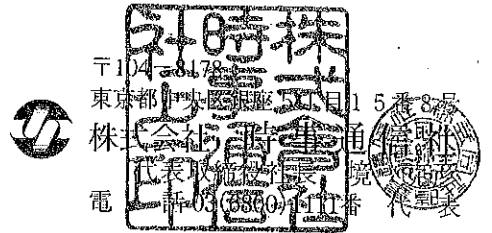 〒104-8178
東京都中央区銀座5丁目15番8号
株式会社 時事通信社
代表取締役社長 境
電 話 03(6800)1111番 代表
株式會社時事通信社之印